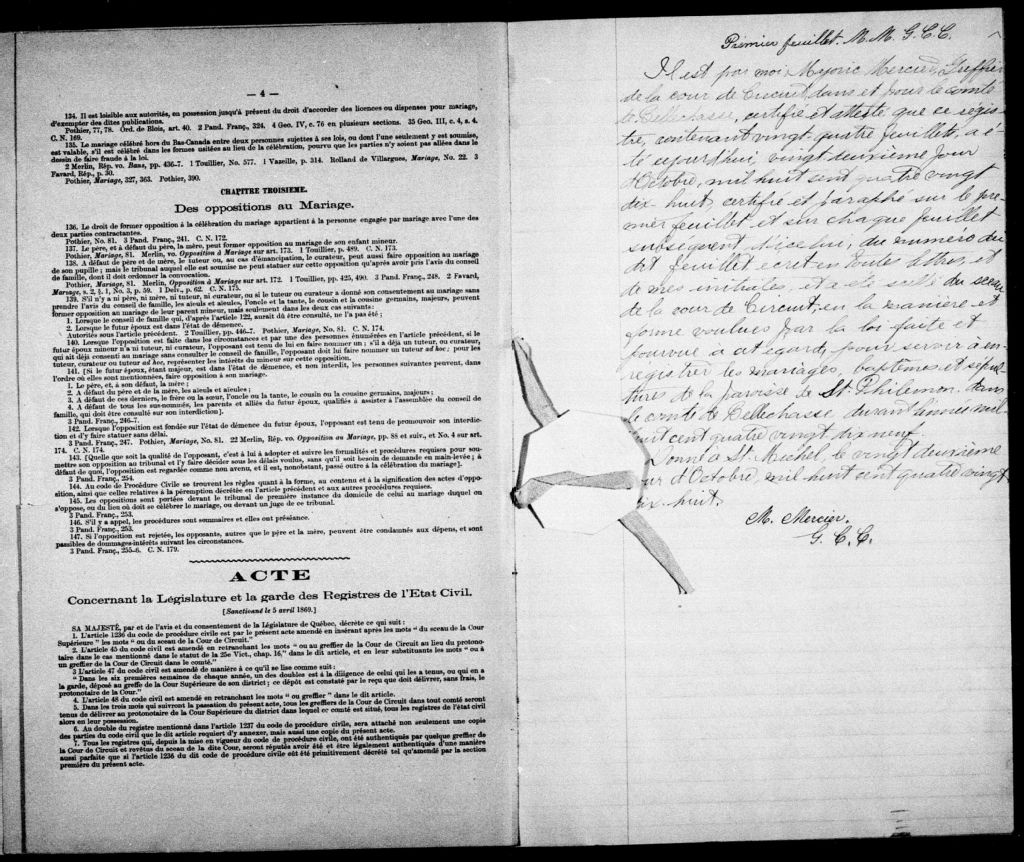 — 4 —
134. Il est loisible aux autorités, en possession jusqu'à présent du droit d'accorder des licences ou dispenses pour mariage,
d'exempter des dites publications.
Pothier, 77, 78. Ord. de Blois, art. 40. 2 Pand. Franç., 324. 4 Geo. IV, c. 76 en plusieurs sections. 35 Geo. III, c. 4, s. 4.
C. N. 169.
135. Le mariage célébré hors du Bas-Canada entre deux personnes sujettes à ses lois, ou dont l'une seulement y est soumise,
est valable, s'il est célébré dans les formes usitées au lieu de la célébration, pourvu que les parties n'y soient pas allées dans le
dessin de faire fraude à la loi.
2 Merlin, Rép. vo. Bans, pp. 436-7. 1 Touillier, No. 577. 1 Vazeille, p. 314. Rolland de Villargues, Mariage, No. 22. 3
Favard, Rép., p. 30.
Pothier, Mariage, 327, 363. Pothier, 390.
CHAPITRE TROISIEME.
Des oppositions au Mariage.
136. Le droit de former opposition à la célébration du mariage appartient à la personne engagée par mariage avec l'une des
deux parties contractantes.
Pothier, No. 81. 3 Pand. Franç., 241. C. N. 172.
137. Le père, et à défaut du père, la mère, peut former opposition au mariage de son enfant mineur.
Pothier, Mariage, 81. Merlin, vo. Opposition à Mariage sur art. 173. 1 Touillier, p. 489. C. N. 173.
138. A défaut de père et de mère, le tuteur ou, au cas d'émancipation, le curateur, peut aussi faire opposition au mariage
de son pupille ; mais le tribunal auquel elle est soumise ne peut statuer sur cette opposition qu'après avoir pris l'avis du conseil
de famille, dont il doit ordonner la convocation.
Pothier, Mariage, 81. Merlin, Opposition à Mariage sur art. 172. 1 Touillier, pp. 425, 490. 3 Pand. Franç., 248. 2 Favard,
Mariage, s. 2, § 1, No. 3, p. 59. 1 Delv., p. 62. C. N. 175.
139. S'il n'y a ni père, ni mère, ni tuteur, ni curateur, ou si le tuteur ou curateur a donné son consentement au mariage sans
prendre l'avis du conseil de famille, les aieuls et aieules, l'oncle et la tante, le cousin et la cousine germains, majeurs, peuvent
former opposition au mariage de leur parent mineur, mais seulement dans les deux cas suivants :
1. Lorsque le conseil de famille qui, d'après l'article 122, aurait dû être consulté, ne l'a pas été ;
2. Lorsque le futur époux est dans l'état de démence.
Autorités sous l'article précédent. 2 Touillier, pp. 446-7. Pothier, Mariage, No. 81. C. N. 174.
140. Lorsque l'opposition est faite dans les circonstances et par une des personnes énumérées en l'article précédent, si le
futur époux mineur n'a ni tuteur, ni curateur, l'opposant est tenu de lui en faire nommer un ; s'il a déjà un tuteur, ou curateur,
qui ait déjà consenti au mariage sans consulter le conseil de famille, l'opposant doit lui faire nommer un tuteur ad hoc ; pour les
tuteur, curateur ou tuteur ad hoc, représenter les intérêts du mineur sur cette opposition.
141. [Si le futur époux, étant majeur, est dans l'état de démence, et non interdit, les personnes suivantes peuvent, dans
l'ordre où elles sont mentionnées, faire opposition à son mariage.
1. Le père, et, à son défaut, la mère ;
2. A défaut du père et de la mère, les aieuls et aieules ;
3. A défaut de ces derniers, le frère ou la sœur, l'oncle ou la tante, le cousin ou la cousine germains, majeurs ;
4. A défaut de tous les sus-nommés, les parents et alliés du futur époux, qualifiés à assister à l'assemblée du conseil de
famille, qui doit être consulté sur son interdiction].
3 Pand. Franç., 246-7.
142. Lorsque l'opposition est fondée sur l'état de démence du futur époux, l'opposant est tenu de promouvoir son interdic-
tion et d'y faire statuer sans délai.
3 Pand. Franç., 247. Pothier, Mariage, No. 81. 22 Merlin, Rép. vo. Opposition au Mariage, pp. 88 et suiv., et No. 4 sur art.
174. C. N. 174.
143. [Quelle que soit la qualité de l'opposant, c'est à lui à adopter et suivre les formalités et procédures requises pour sou-
mettre son opposition au tribunal et l'y faire décider sous les délais voulus, sans qu'il soit besoin de demande en main-levée ; à
défaut de quoi, l'opposition est regardée comme non avenu, et il est, nonobstant, passé outre à la célébration du mariage].
3 Pand. Franç., 254.
144. Au code de Procédure Civile se trouvent les règles quant à la forme, au contenu et à la signification des actes d'oppo-
sition, ainsi que celles relatives à la péremption décrétée en l'article précédent et aux autres procédures requises.
145. Les oppositions sont portées devant le tribunal de première instance du domicile de celui au mariage duquel on
s'oppose, ou du lieu où doit se célébrer le mariage, ou devant un juge de ce tribunal.
3 Pand. Franç., 253.
146. S'il y a appel, les procédures sont sommaires et elles ont préséance.
3 Pand. Franç., 253.
147. Si l'opposition est rejetée, les opposants, autres que le père et la mère, peuvent être condamnés aux dépens, et sont
passibles de dommages-intérêts suivant les circonstances.
3 Pand. Franç., 255-6. C. N. 179.
ACTE
Concernant la Législature et la garde des Registres de l'Etat Civil.
[Sanctionné le 5 avril 1869.]
SA MAJESTÉ, par et de l'avis et du consentement de la Législature de Québec, décrète ce qui suit :
1. L'article 1236 du code de procédure civile est par le présent acte amendé en insérant après les mots " du sceau de la Cour
Supérieure " les mots " ou du sceau de la Cour de Circuit."
2. L'article 45 du code civil est amendé en retranchant les mots " ou au greffier de la Cour de Circuit au lieu du protono-
taire dans le cas mentionné dans le statut de la 25e Vict., chap. 16," dans le dit article, et en leur substituants les mots " ou à
un greffier de la Cour de Circuit dans le comté."
3 L'article 47 du code civil est amendé de manière à ce qu'il se lise comme suit :
" Dans les six premières semaines de chaque année, un des doubles est à la diligence de celui qui les a tenus, ou qui en a
la garde, déposé au greffe de la Cour Supérieure de son district ; ce dépôt est constaté par le reçu que doit délivrer, sans frais, le
protonotaire de la Cour."
4. L'article 48 du code civil est amendé en retranchant les mots " ou greffier " dans le dit article.
5. Dans les trois mois qui suivront la passation du présent acte, tous les greffiers de la Cour de Circuit dans tout comté seront
tenus de délivrer au protonotaire de la Cour Supérieure du district dans lequel ce comté est situé, tous les registres de l'état civil
alors en leur possession.
6. Au double du registre mentionné dans l'article 1237 du code de procédure civile, sera attaché non seulement une copie
des parties du code civil que le dit article requiert d'y annexer, mais aussi une copie du présent acte.
7. Tous les registres qui, depuis la mise en vigueur du code de procédure civile, ont été authentiqués par quelque greffier de
la Cour de Circuit et revêtus du sceau de la dite Cour, seront réputés avoir été et être légalement authentiqués d'une manière
aussi parfaite que si l'article 1236 du dit code de procédure civile eût été primitivement décrété tel qu'amendé par la section
première du présent acte.
Premier feuillet. M. M. G. C. C.
Il est par moi Majoric Mercier, Greffier
de la cour de Circuit, dans et pour le comté
de Bellechasse, certifié et attesté que ce regis-
tre, contenant vingt-quatre feuillets, a é-
té ce jourd'hui, vingt deuxième jour
d'Octobre, mil huit sent quatre vingt
dix-huit, certifié et paraphé sur le pre-
mier feuillet et sur chaque feuillet
subséquent d'icelui, du numéro du
dit feuillet écrit en toutes lettres, et
de mes initiales, et a été scellé du sceau
de la cour de Circuit, en la manière et
forme voulues par la loi faite et
pourvue a cet égard, pour servir à en-
registrer les mariages, baptêmes et sépul-
tures de la paroisse de St. Philémon dans
le comté de Bellechasse, durant l'année mil
huit cent quatre vingt dix neuf.
Donné à St. Michel, le vingt deuxième
jour d'Octobre, mil huit sent quatre vingt
dix-huit.
M. Mercier.
G. C. C.